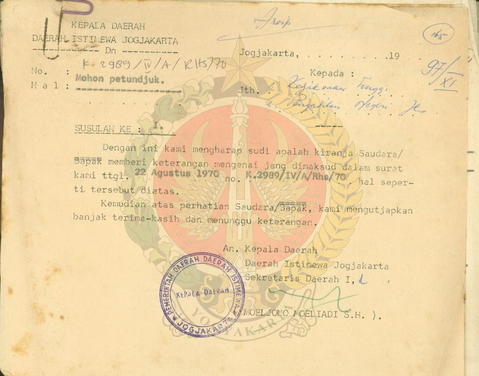 KEPALA DAERAH
DAERAH ISTIMEWA JOGJAKARTA
Dn
K. 2989/IV/A/RHS/70
No. :
Hal : Mohon petundjuk.
Arsip
165
97/XI
Jogjakarta, . . . . . . . . . . . . . 19
Kepada :
Jth. : Kedjaksaan Tinggi
Pengadilan Negeri
SUSULAN KE :
Dengan ini kami mengharap sudi apalah kiranja Saudara/
Bapak memberi keterangan mengenai jang dimaksud dalam surat
kami ttgl. 22 Agustus 1970 no. K.2989/IV/A/Rhs/70. hal seper-
ti tersebut diatas.
Kemudian atas perhatian Saudara/Bapak, kami mengutjapkan
banjak terima-kasih dan menunggu keterangan.
An. Kepala Daerah
Daerah Istimewa Jogjakarta
Sekretaris Daerah I,
MOELJONO MOELIADI S.H. ).
PEMERINTAH DAERAH DAERAH ISTIMEWA
KEPALA DAERAH
JOGJAKARTA
YOGYAKARTA